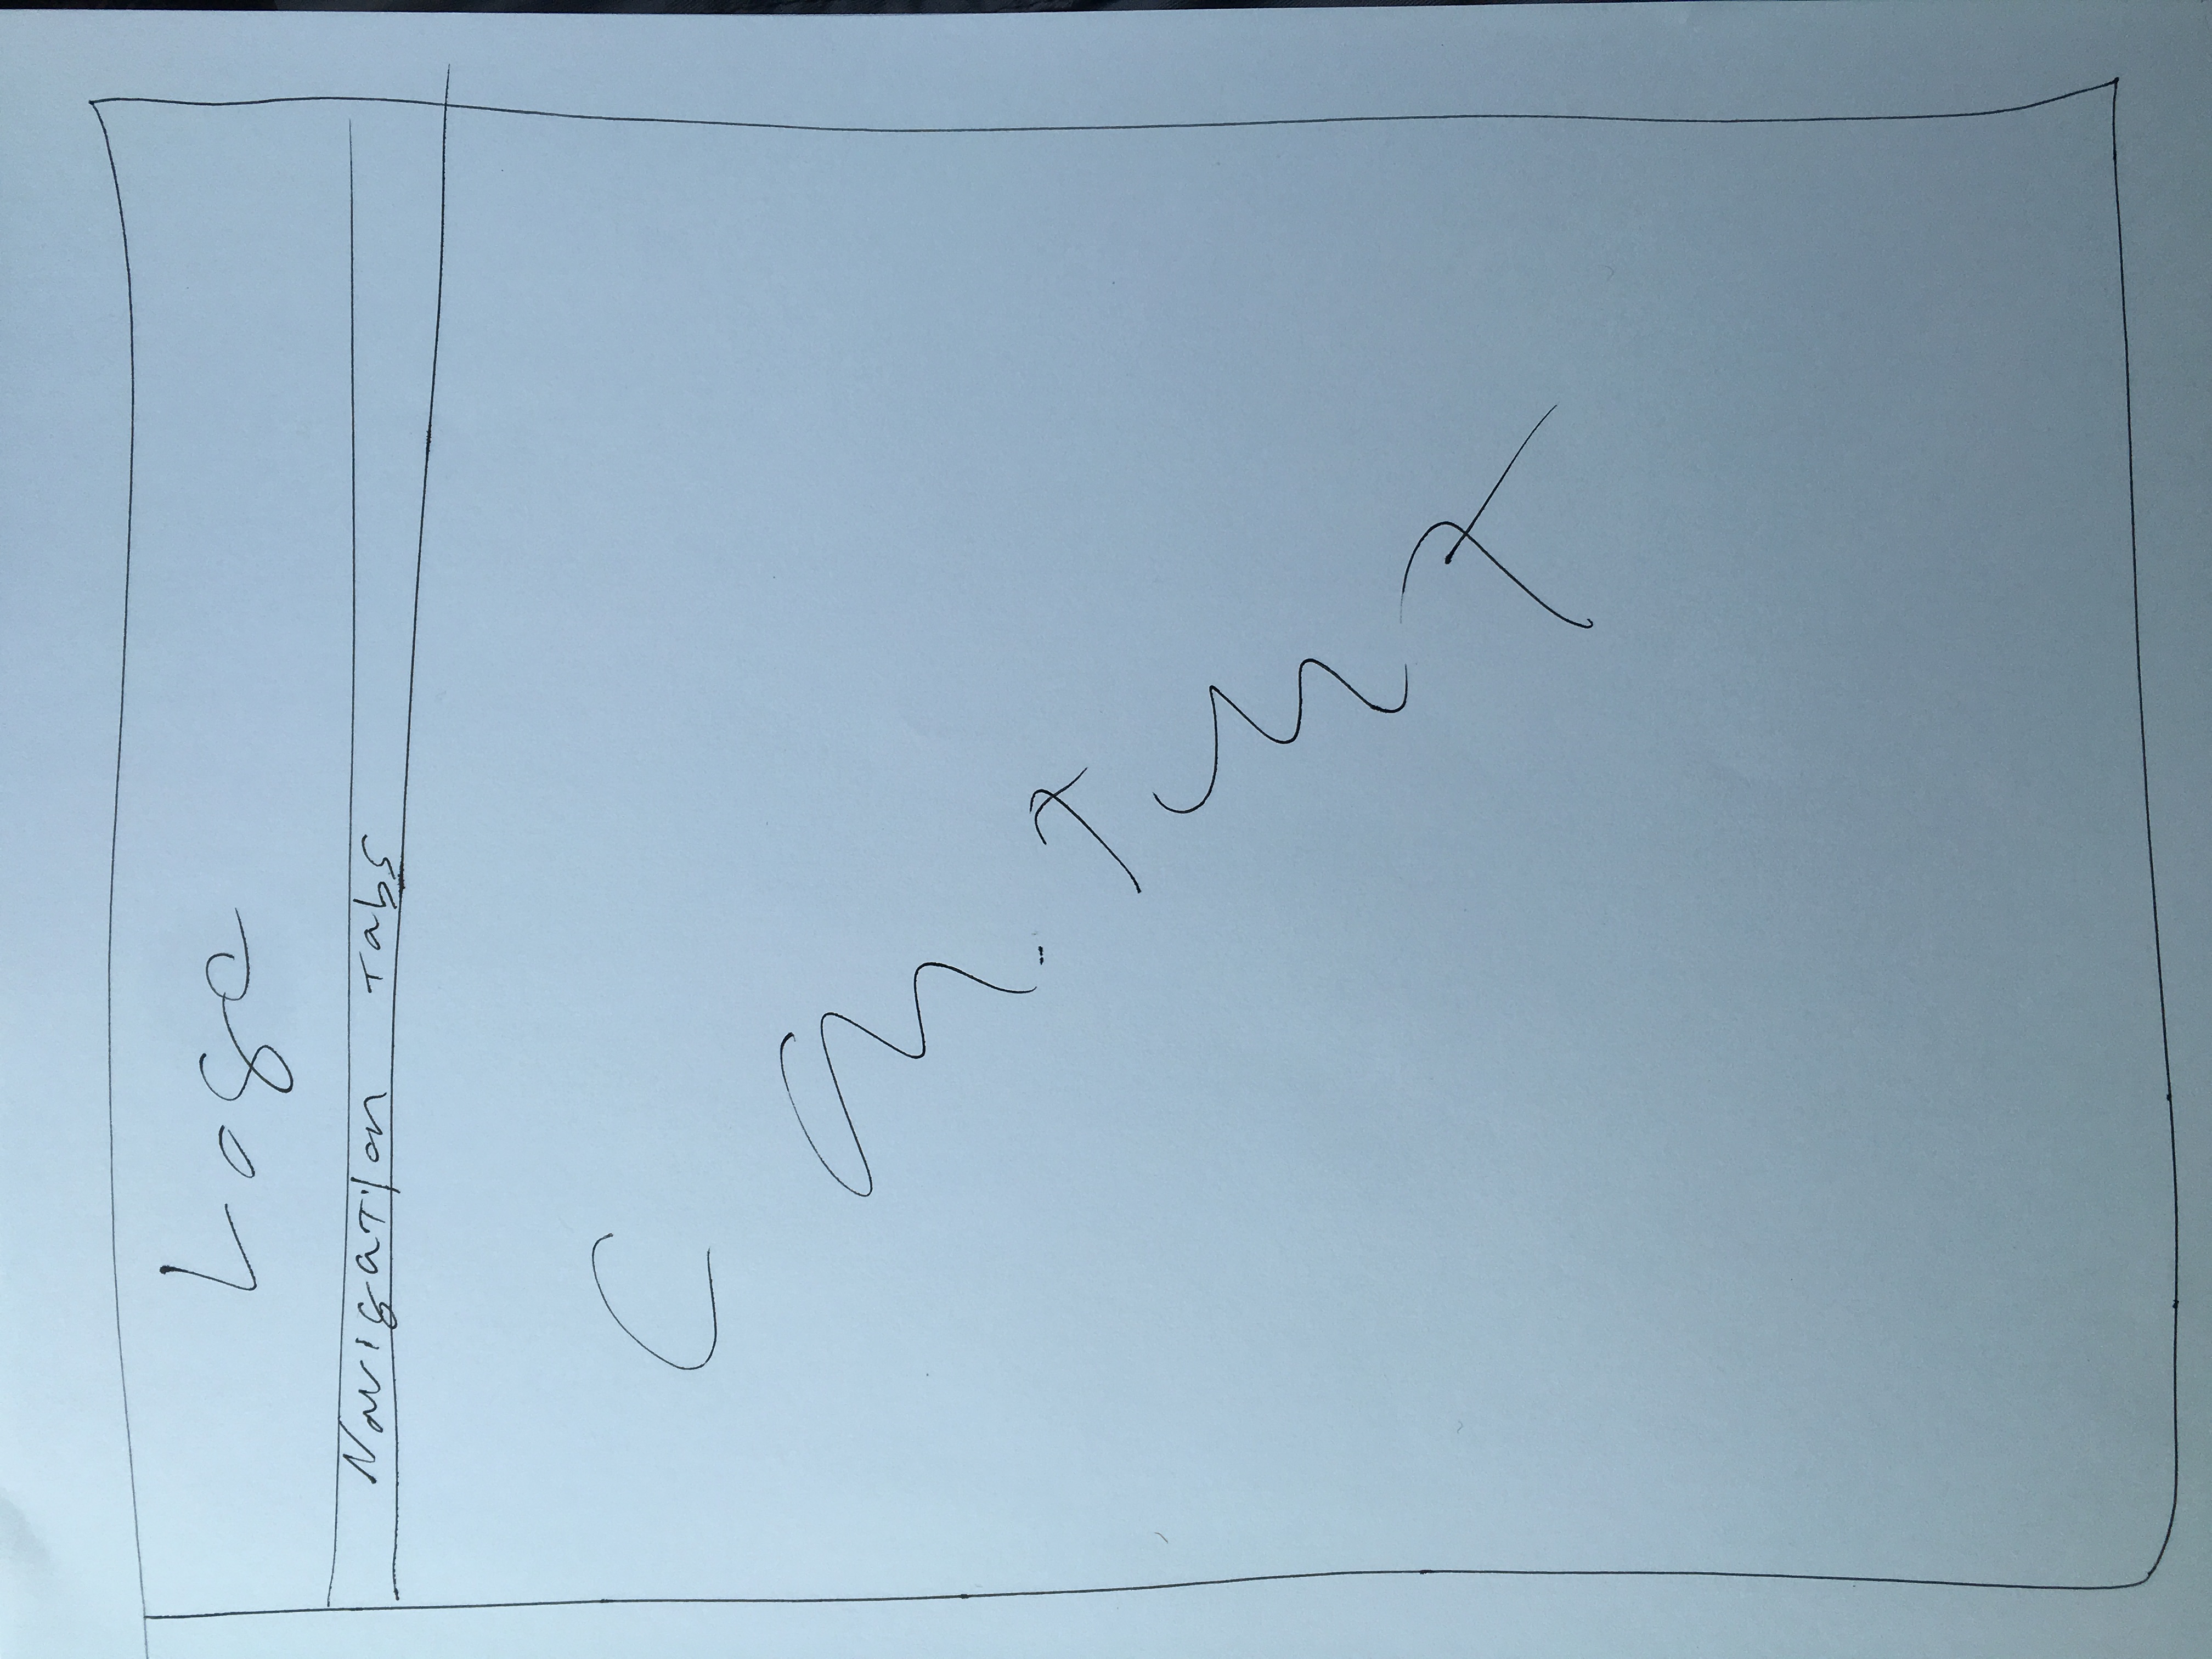 Logo
Navigation Tabs
Content